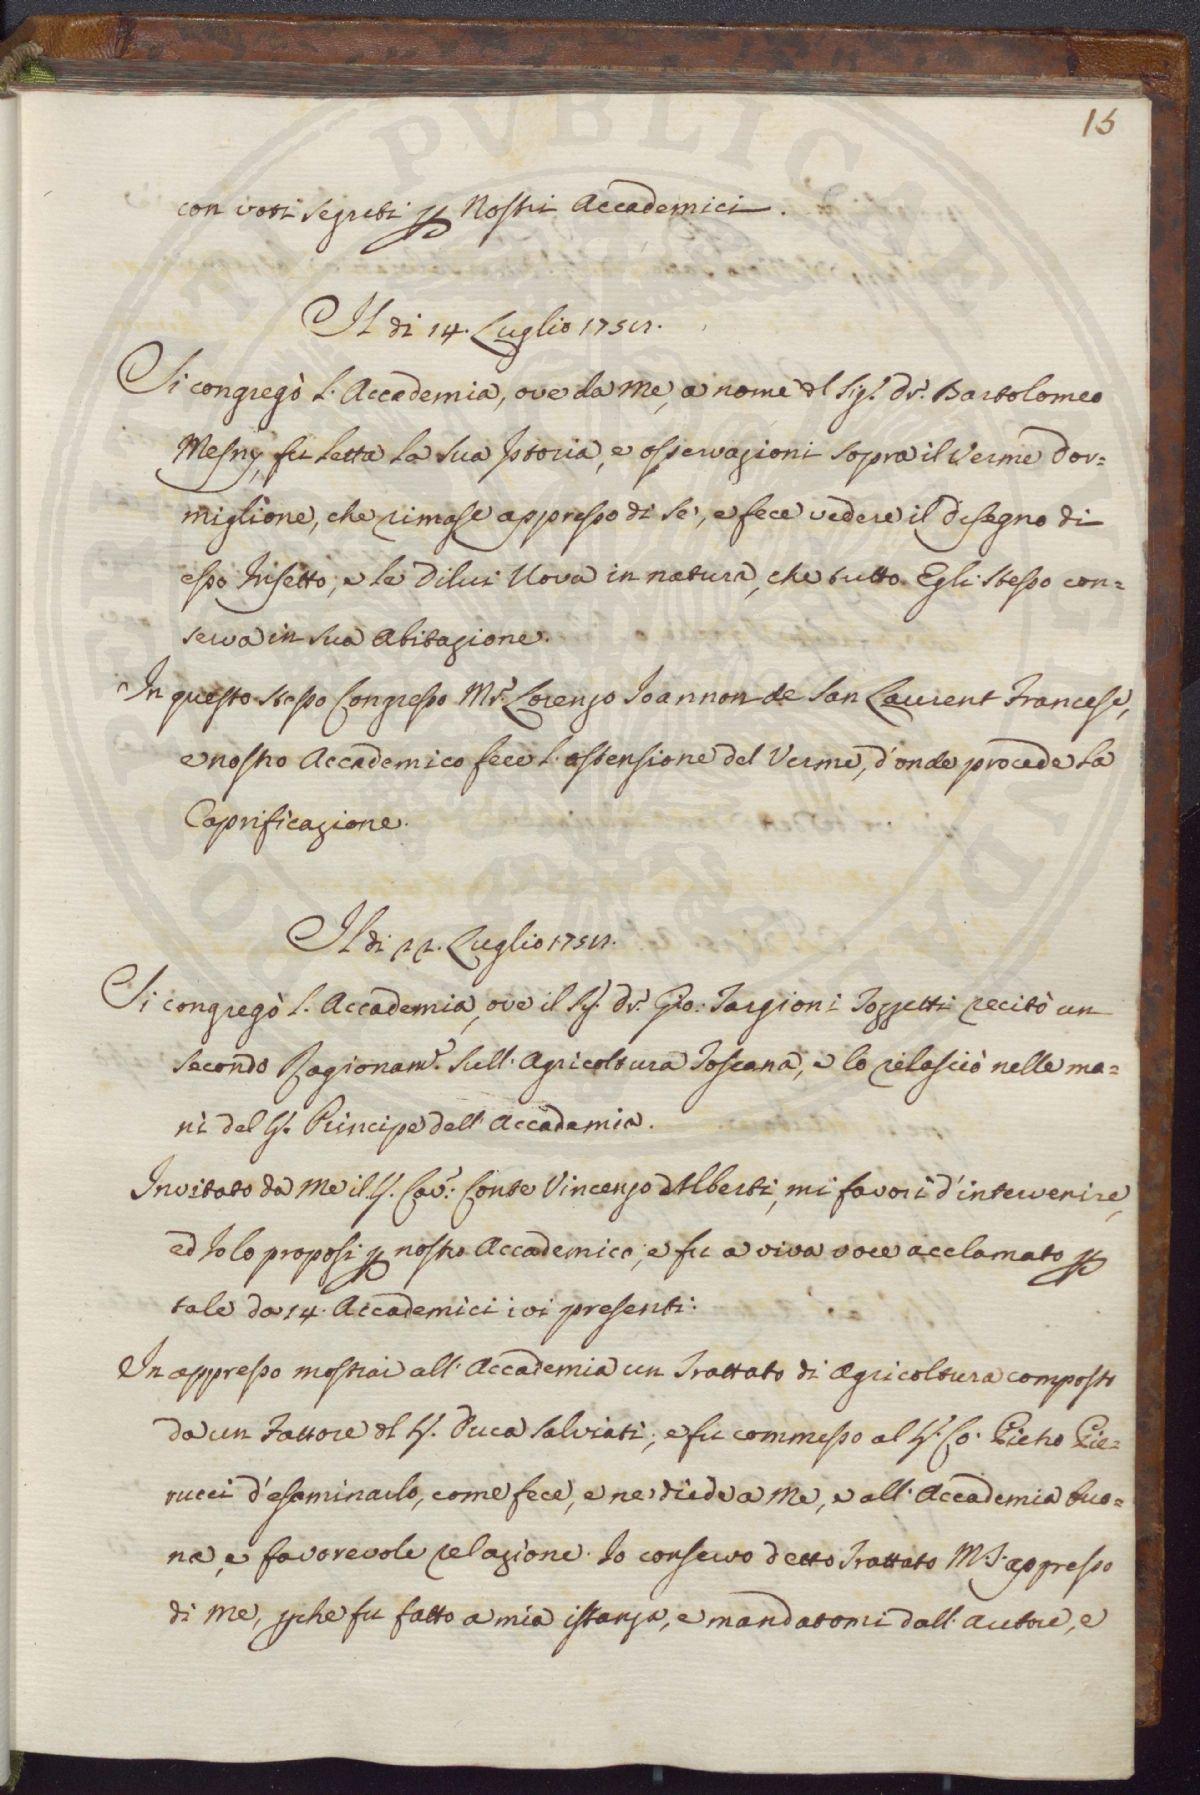 15
con voti segreti per Nostri Accademici.
Il di 14. Luglio 1757.
Si congregò l'Accademia, ove da Me, a nome del Sig.r Dr. Bartolomeo
Mesny, fu letta la sua Istoria, e osservazioni sopra il Verme Dor=
miglione, che rimase appresso di Se, e fece vedere il Disegno di
esso Insetto, e le Dilui Uova in natura, che tutto Egli stesso con=
serva in sua Abitazione.
In questo stesso Congresso Mr. Lorenzo Joannon de San Laurent Francese,
e nostro Accademico fece l'ostensione del Verme, d'onde procede la
Caprificazione.
Il di Luglio 1757.
Si congregò l'Accademia, ove il Sig. Dr. Gio: Targioni Tozzetti recitò un
secondo Ragionam.o sull'Agricoltura Toscana, e lo rilasciò nelle ma=
ni del Sig. Principe dell'Accademia.
Invitato da Me il Sig. Cav.r Conte Vincenzo Alberti, mi favorì d'intervenire,
ed Io lo proposi per nostro Accademico, e fu a viva voce acclamato per
tale da 14. Accademici ivi presenti.
In appresso mostrai all'Accademia un Trattato di Agricoltura composto
da un Fattore del Sig. Duca Salviati, e fu commesso al Sig. Co. Pietro Pie=
rucci d'esaminarlo, come fece, e ne diede a Me, e all'Accademia buo=
na, e favorevole relazione. Io conservo detto Trattato M.S. appresso
di Me, perche fu fatto a mia istanza, e mandatomi dall'Autore, e
PUBLICAE